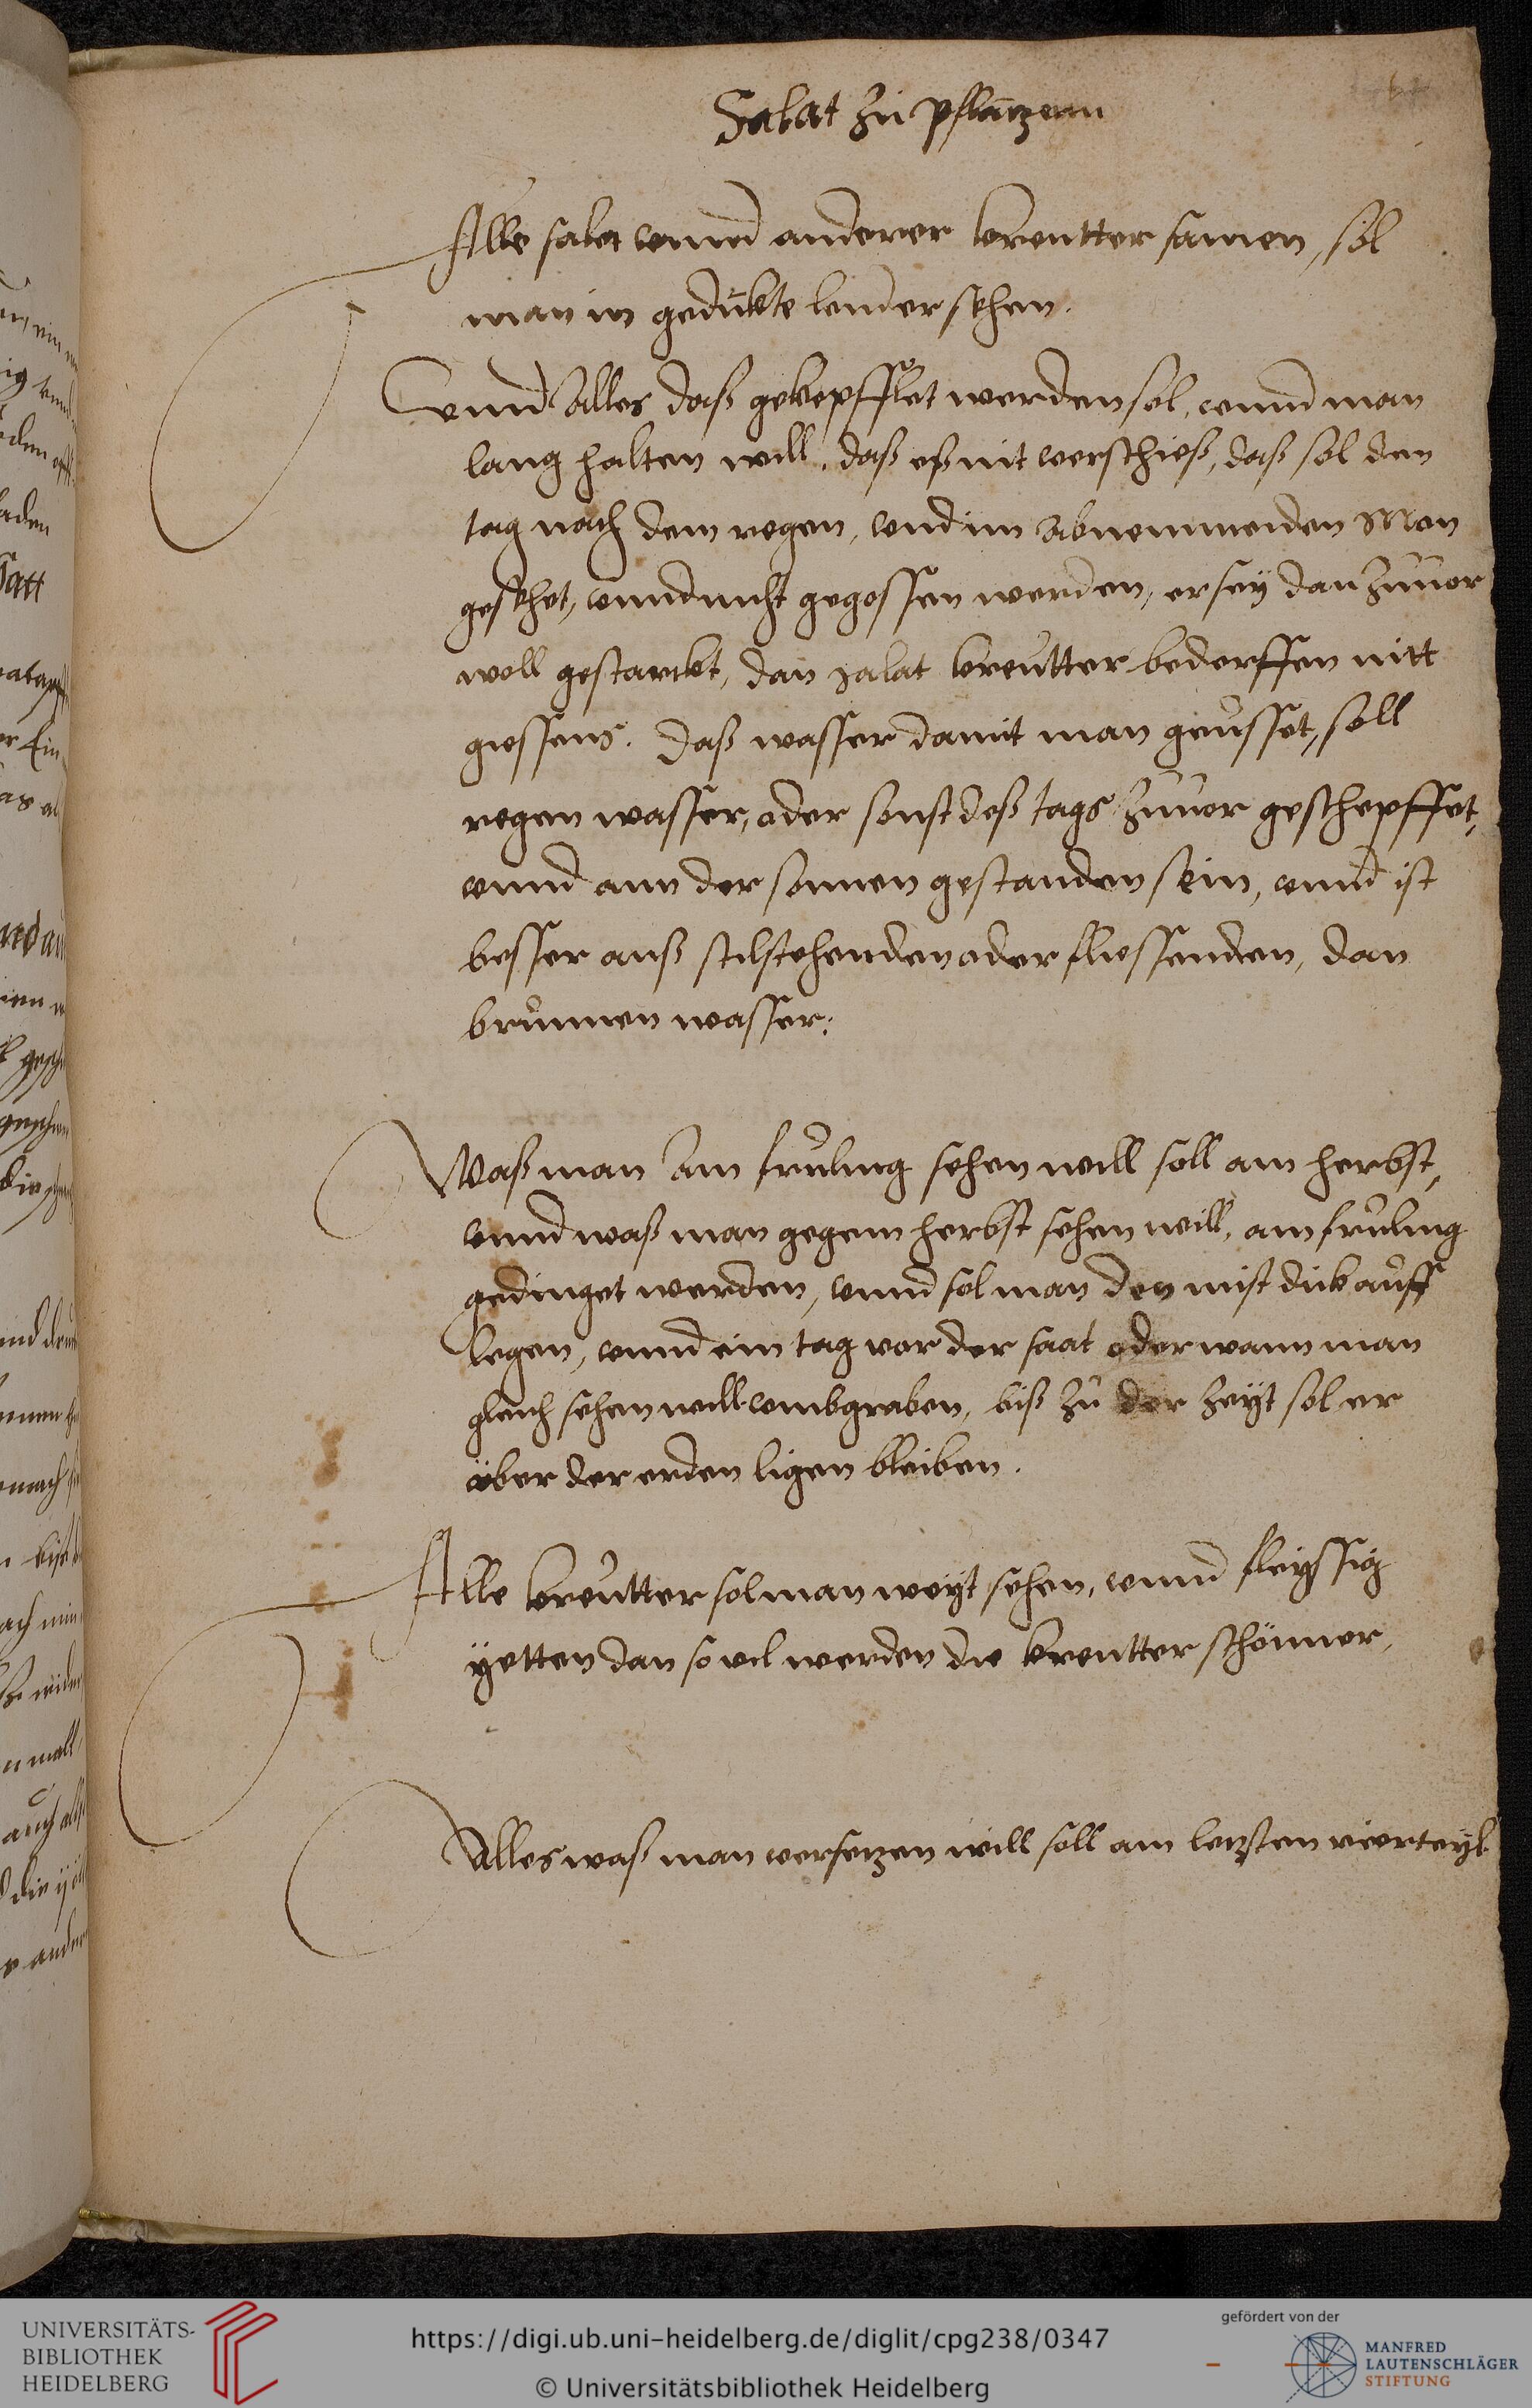 Salat zu pflantzenn
Alle salat vnnd anderer kreutter samen, sol
man in gedückte lender sehen.
Vnnd alles daß gekepfflet werden sol, vnnd man
lang halten will, daß eß nit verschieß, daß sol den
tag nach dem regen, vnd im abnemmenden Mon
gesehet, vnnd nicht gegossen werden, er sey dan zuuor
woll gestarckt, dan salat kreutter bederffen nitt
giessens. Daß wasser damit man geusset, soll
regen wasser, oder sonst deß tags zuuor geschepffet,
vnnd ann der sonnen gestanden sein, vnnd ist
besser auß stilstehenden oder fliessenden, dan
brunnen wasser:
Waß man am fruling sehen will soll am herbst,
vnnd waß man gegem herbst sehen will, am fruling
gedinget werden, vnnd sol man den mist dick auff
legen, vnnd ein tag vor der saat oder wann man
gleich sehen will vmbgraben, biß zu der zeyt sol er
über der erden ligen bleiben.
Alle kreutter sol man weyt sehen, vnnd fleyssig
yetten dan so vil werden die kreutter schönner,
Alles waß man versetzen will soll am letzsten vierteyl
UNIVERSITÄTS-
BIBLIOTHEK
HEIDELBERG
https://digi.ub.uni-heidelberg.de/diglit/cpg238/0347
© Universitätsbibliothek Heidelberg
gefördert von der
MANFRED
LAUTENSCHLÄGER
STIFTUNG